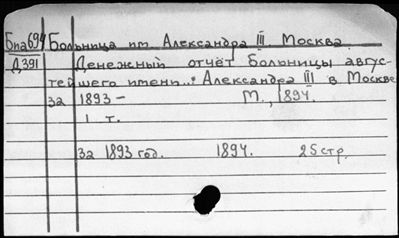 Бпа694 Больница им. Александра III Москва.
Д391 Денежный отчёт Больницы авгус-
тейшего имени...: Александра III в Москве
за 1893 – М., 1894.
1 т.
за 1893 год. 1894. 25стр.